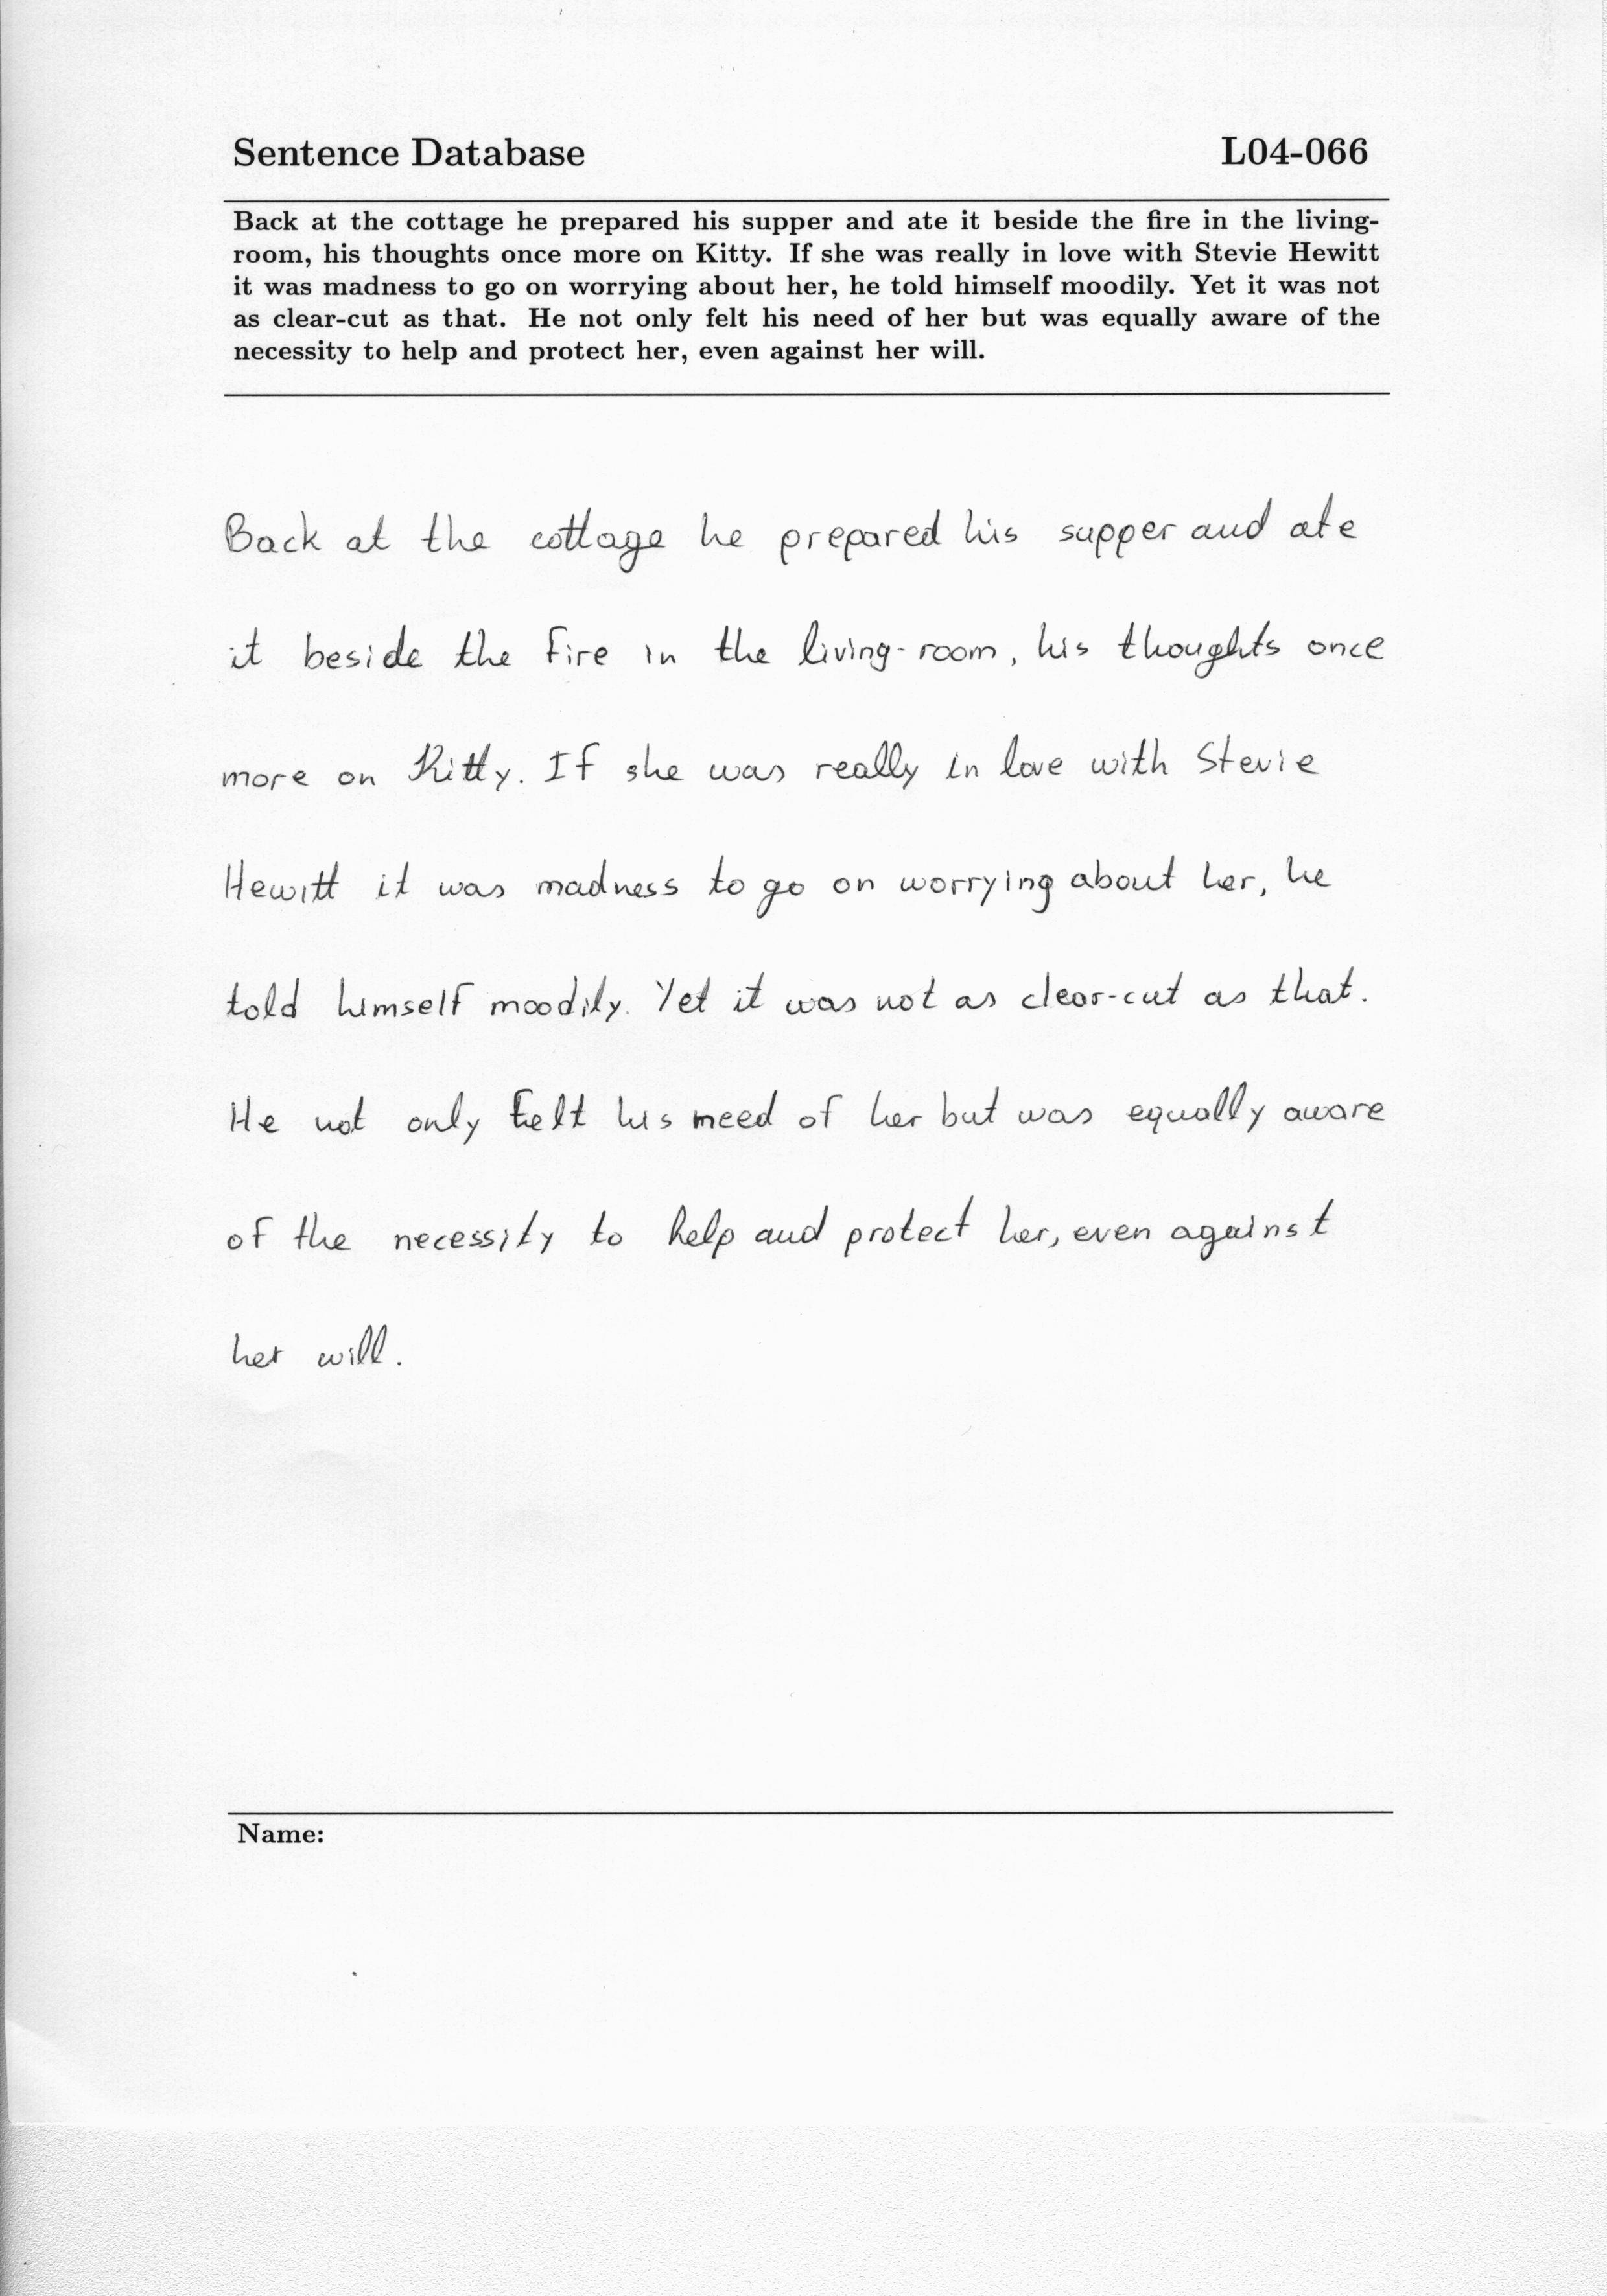 Sentence Database L04-066
Back at the cottage he prepared his supper and ate it beside the fire in the living-
room, his thoughts once more on Kitty. If she was really in love with Stevie Hewitt
it was madness to go on worrying about her, he told himself moodily. Yet it was not
as clear-cut as that. He not only felt his need of her but was equally aware of the
necessity to help and protect her, even against her will.
Back at the cottage he prepared his supper and ate
it beside the fire in the living-room, his thoughts once
more on Kitty. If she was really in love with Stevie
Hewitt it was madness to go on worrying about her, he
told himself moodily. Yet it was not as clear-cut as that.
He not only felt his need of her but was equally aware
of the necessity to help and protect her, even against
her will.
Name: